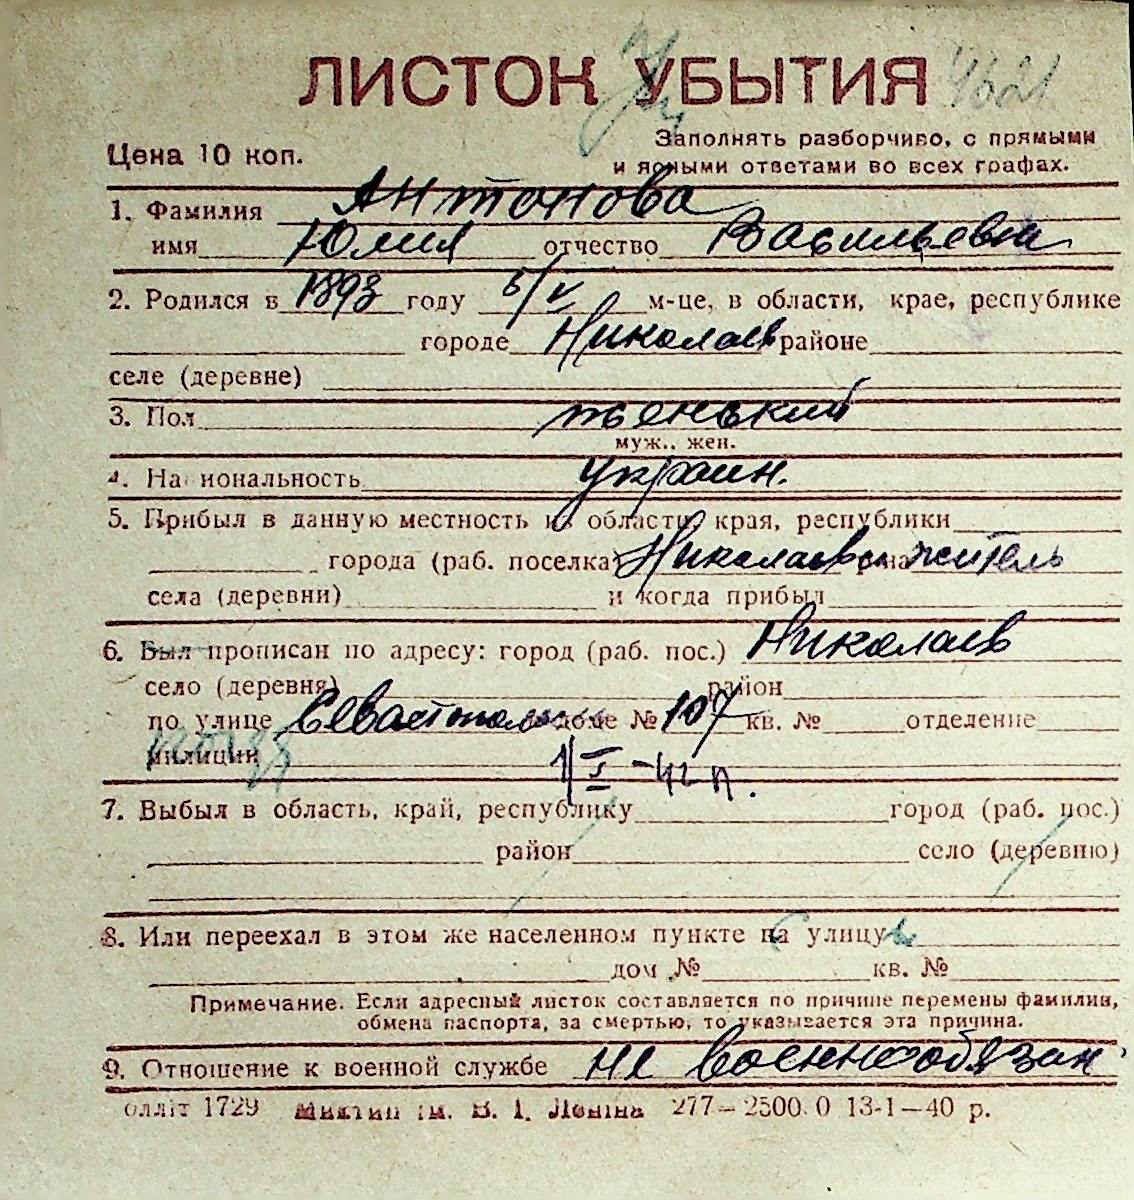 ЛИСТОК УБЫТИЯ 4621
Цена 10 коп.
Заполнять разборчиво, с прямыми
и ясными ответами во всех графах.
1. Фамилия Антонова
имя Юлия отчество Васильевна
2. Родился в 1893 году 5/V м-це, в области, крае, республике
городе Николаев районе
селе (деревне)
3. Пол женский
муж., жен.
4. Национальность украин.
5. Прибыл в данную местность из области, края, республики
города (раб. поселка) Николаев житель
села (деревни) и когда прибыл
6. Был прописан по адресу: город (раб. пос.) Николаев
село (деревня) район
по улице Севастопольск доме № 107 кв. № отделение
милиции
7. Выбыл в область, край, республику город (раб. пос.)
район село (деревню)
8. Или переехал в этом же населенном пункте на улицу
дом № кв. №
Примечание. Если адресный листок составляется по причине перемены фамилии,
обмена паспорта, за смертью, то указывается эта причина.
9. Отношение к военной службе не военнообязан
1729 ім. В. І. Леніна 277—2500.0 13-1—40 р.